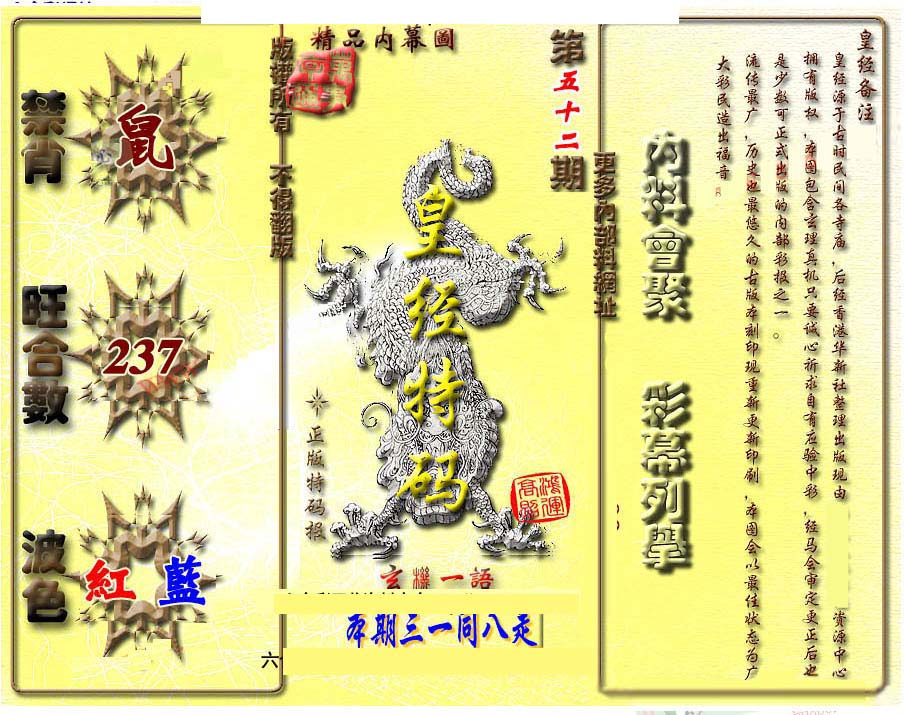 精品内幕圖
第五十二期
版權所有 不得翻版
更多內部料網址
禁肖
鼠
旺合數
237
波色
紅 藍
皇经特码
正版特码报
鴻運高照
玄機一語
本期三一同八走
六
內料會聚
彩幕列舉
皇经备注
皇经源于古时民间各寺庙,后经香港华新社整理出版现由 资源中心
拥有版权,本图包含玄理真机只要诚心祈求自有应验中彩,经马会审定更正后也
是少数可正式出版的内部彩报之一。
流传最广,历史也最悠久的古版本刻印现重新更新印刷,本图会以最佳状态为广
大彩民造出福音